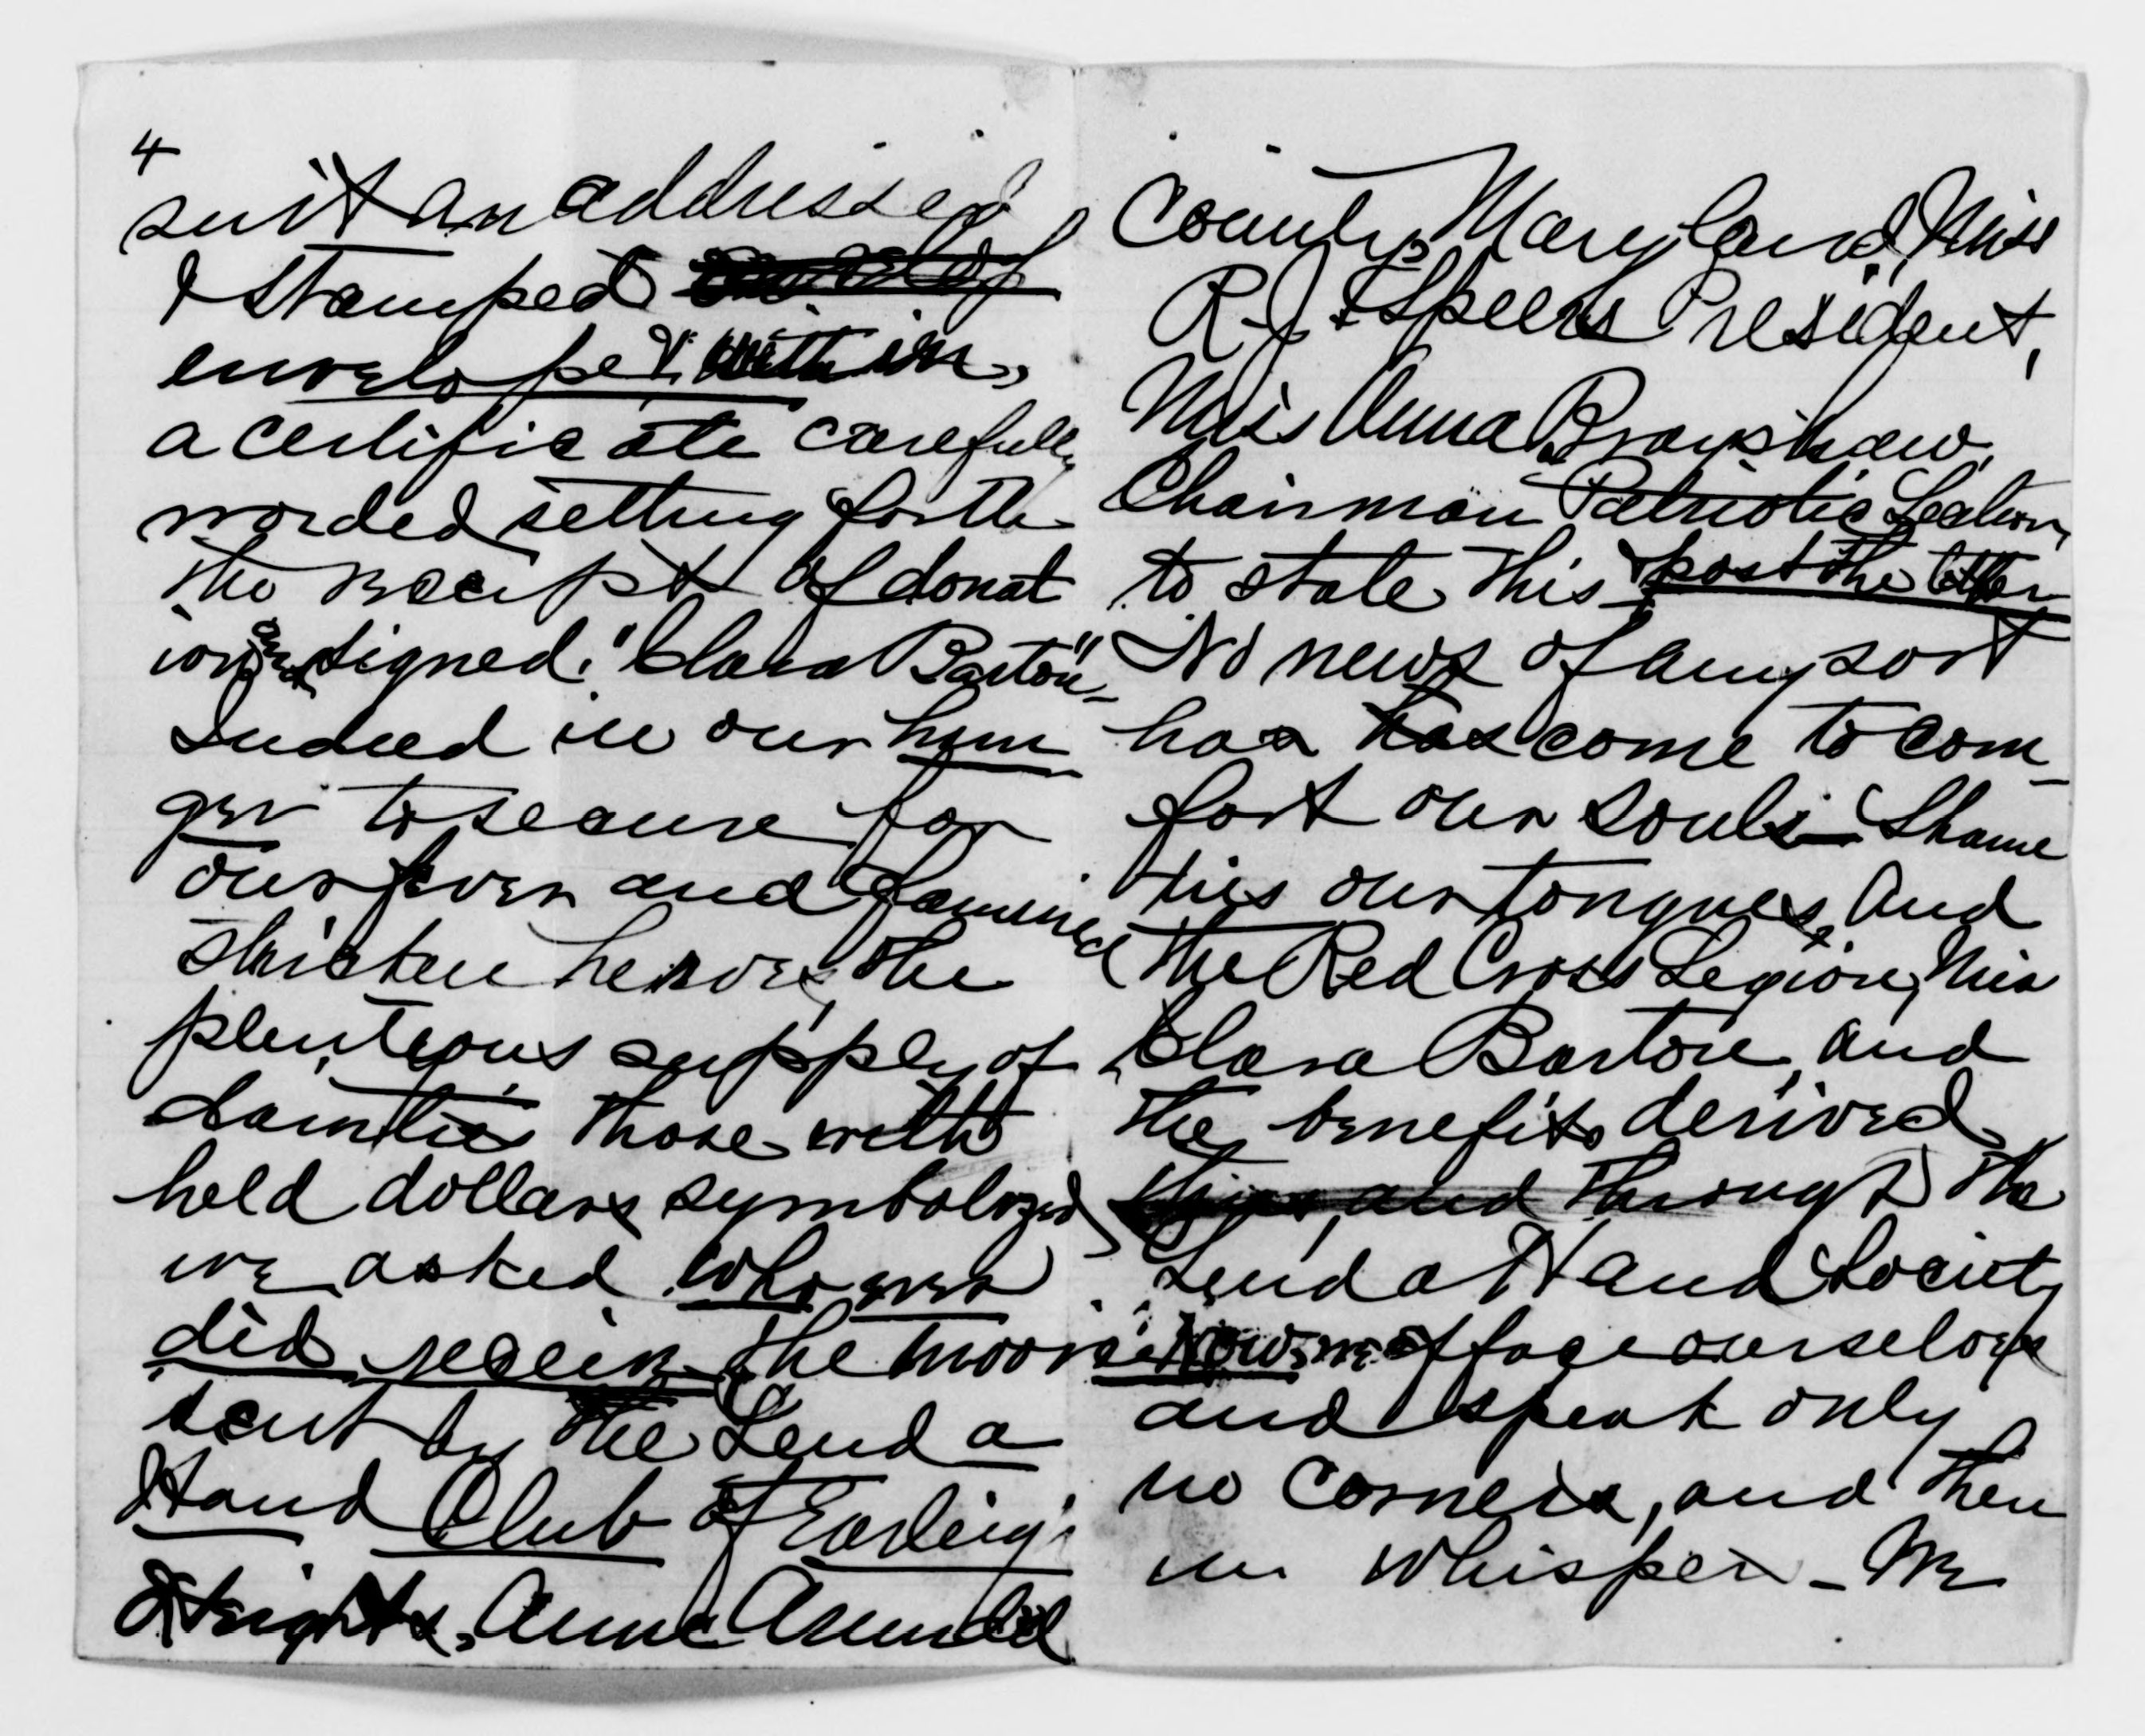 4
suit an addressed
& stamped
envelope, & with in,
a certificate carefully
worded setting forth
the receipt of donat
ion and signed: "Clara Barton"-
Indeed in our hun
ger to secure for
our fever and famined
stricken heroes, the
plenteous supply of
dainties those with
held dollars symbolized
we asked who ever
did receive the moneys
sent by the Lend a
Hand Club of Earleigh
Heights, Anne Arundel
County, Maryland, Miss
R. J. Speers President,
Miss Anna Brayshaw,
Chairman Patriotic Section,
to state this & post the letter
No news of any sort
has has come to com-
fort our souls - Shame
ties our tongues, and
the Red Cross Legion, Miss
Clara Barton, and
the benefits derived
and through the
Lend a Hand Society
Now, we efface ourselves
and speak only
in corners, and then
in whisper - We